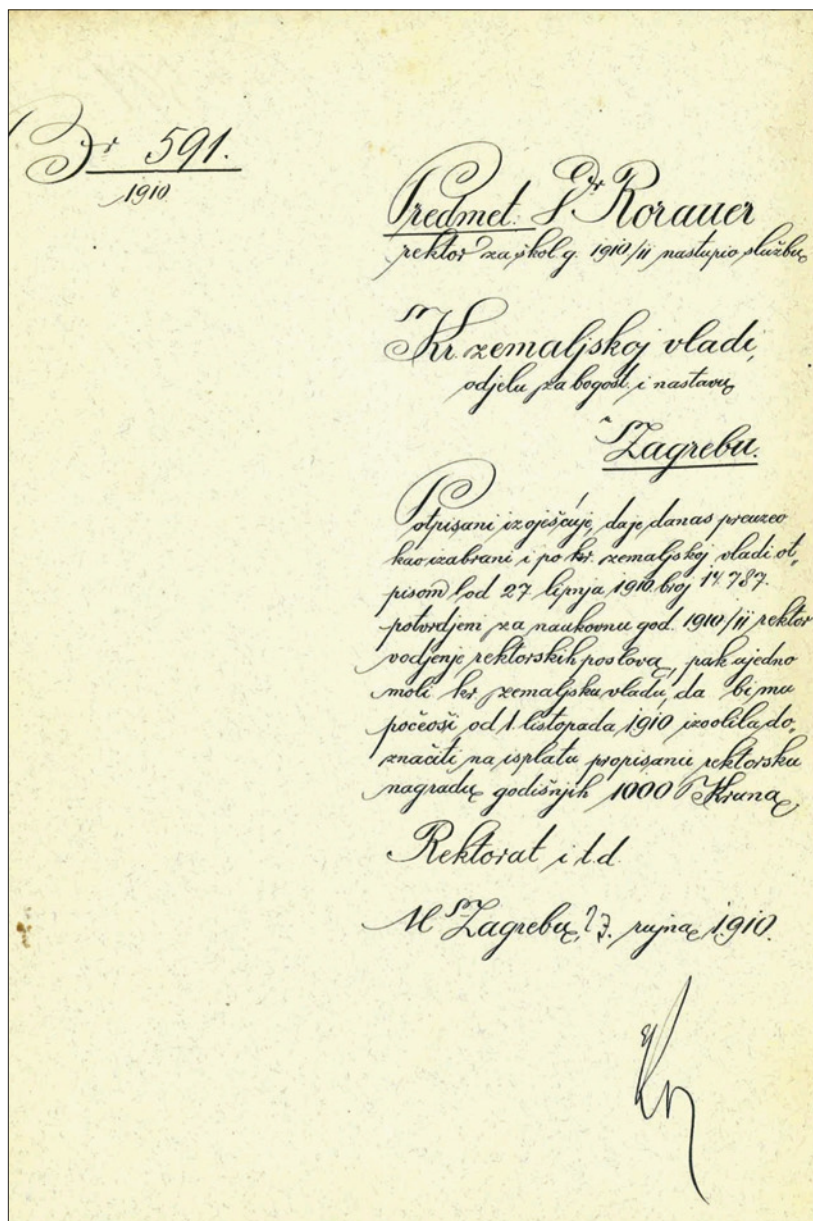 Br 591.
1910.
Predmet. Dr Rorauer
rektor za škol g. 1910/11 nastupio službu
Kr. zemaljskoj vladi,
odjelu za bogošt. i nastavu
Zagrebu.
Potpisani izvješćuje, da je danas preuzeo
kao izabrani i po kr. zemaljskoj vladi ot-
pisom od 27. lipnja 1910. broj 14.787.
potvrdjeni za naukovnu god. 1910/11 rektor
vodjenje rektorskih poslova, pak ujedno
moli kr zemaljsku vladu, da bi mu
počevši od 1. listopada 1910 izvolila do-
značiti na isplatu propisanu rektorsku
nagradu godišnjih 1000 Kruna
Rektorat i t.d.
U Zagrebu, rujna 1910.